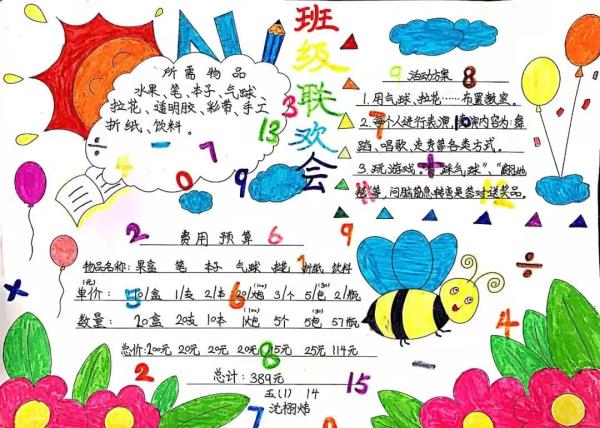 班级联欢会
所需物品
水果、笔、本子、气球、
拉花、透明胶、彩带、手工
折纸、饮料。
活动方案
1. 用气球、拉花……布置教室。
2. 每个人进行表演,表演内容为:舞
蹈、唱歌、史秀等各类方式。
3. 玩游戏。"踩气球"、
等,问脑筋急转弯是答对送奖品。
费用预算
物品名称: 果盒 笔 本子 气球 拉花 折纸 饮料
(元)
单价: 10/盒 1/支 2/本 20/炮(100) 3/个 5/包(30) 2/瓶
数量: 20盒 20支 10本 1炮(100) 5个 5包(30) 57瓶
总价: 200元 20元 20元 20元 15元 25元 114元
总计: 389元
五(1) 14
沈栩炜